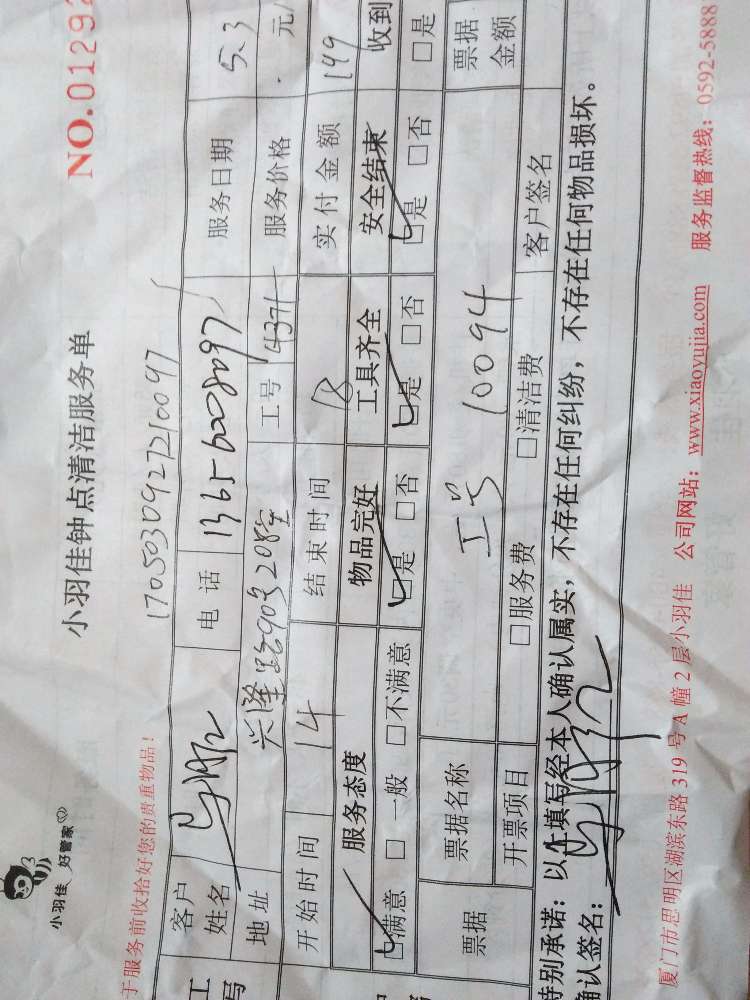 小羽佳 好管家
小羽佳钟点清洁服务单
NO.01292
于服务前收拾好您的贵重物品!
1705030927210097
客户姓名 电话 13656008097 服务日期 5.3
地址 兴隆路590号208室 工号 4371 服务价格 . 元/
开始时间 14 结束时间 18 实付金额 149
服务态度 物品完好 工具齐全 安全结束 收到
☑满意 □一般 □不满意 ☑是 □否 ☑是 □否 ☑是 □否 □是
票据 票据名称 工号 10094 票据金额
开票项目 □服务费 □清洁费 客户签名
特别承诺:以上填写经本人确认属实,不存在任何纠纷,不存在任何物品损坏。
确认签名:
厦门市思明区湖滨东路 319 号 A 幢 2 层小羽佳 公司网站:www.xiaoyujia.com 服务监督热线:0592-5888